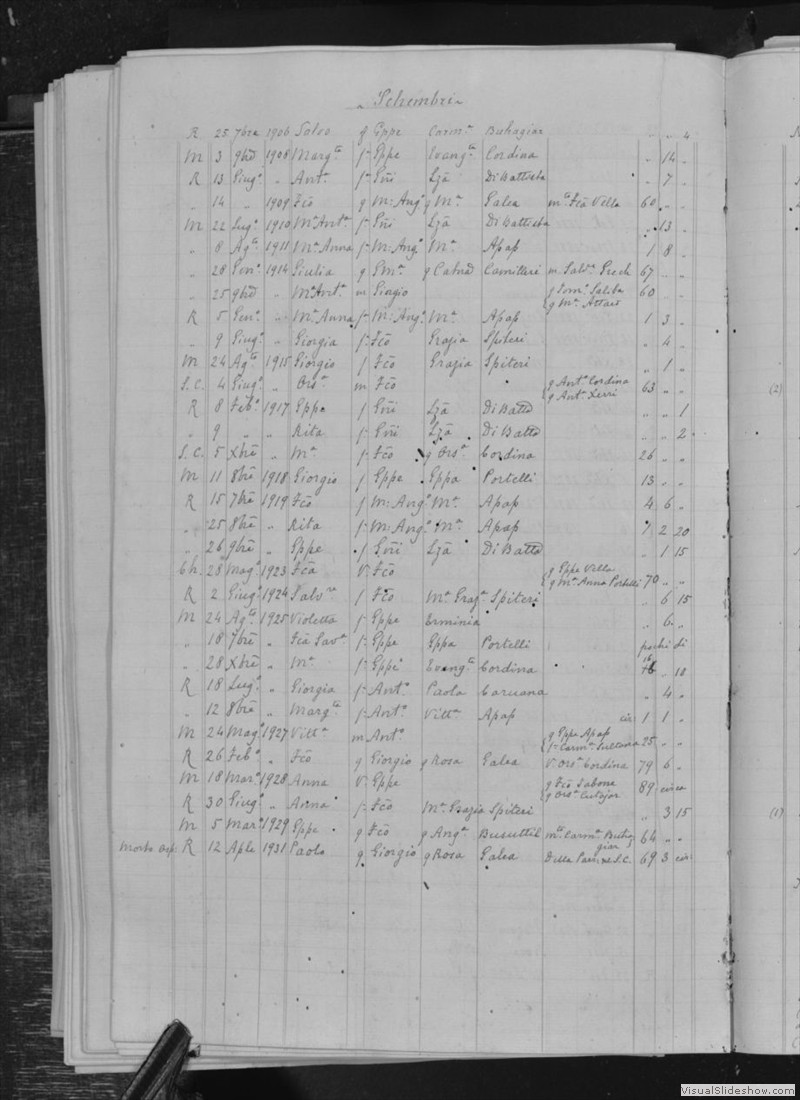 Schembri
R 25 7bre 1906 Salvo f Gppe Carmª Buhagiar " " 4
M 3 9bre 1908 Margta f. Gppe Evangta Cordina " 14 "
R 13 Giugº " Antª f. Gñi Lza DiBattista " 7 "
" 14 " 1909 Fcõ g M: Angº g Mª Galea mto Fcã Vella 60 " "
M 22 Lugº 1910 Mª Antª f. Gñi Lza DiBattista " 13 "
" 8 Agto 1911 Mª Anna f. M: Angº Mª Apap 1 8 "
" 28 Genº 1914 Giulia g Emª g Catna Camilleri m. Salvº Grech 67 " "
" 25 9bre " Mª Antª m Giorgio g Domº Saliba g Mª Attard 60 " "
R 5 Genº " Mª Anna f. M: Angº Mª Apap 1 3 "
" 9 Giugº " Giorgia f. Fcõ Grazia Spiteri " 4 "
M 24 Agto 1915 Giorgio f Fcõ Grazia Spiteri " 1 "
S.C. 4 Giugº " Orsª m Fcõ g Antº Cordina g Antª Xerri 63 " "
R 8 Febº 1917 Gppe f Gñi Lza DiBatta " " 1
" 9 " " Rita f. Gñi Lza DiBatta " " 2
S.C. 5 Xbre " Mª f. Fcõ g Orsª Cordina 26 " "
M 11 8bre 1918 Giorgio f Gppe Gppa Portelli 13 " "
R 15 7bre 1919 Fcõ f M: Angº Mª Apap 4 6 "
" 25 8bre " Rita f. M: Angº Mª Apap 1 2 20
" 26 9bre " Gppe f Gñi Lza DiBatta " 1 15
Ch. 28 Magº 1923 Fcã V. Fcõ g Gppe Vella g Mª Anna Portelli 70 " "
R 2 Giugº 1924 f Fcõ Mª Grazª Spiteri " 6 15
M 24 Agto 1925 Violetta f. Gppe Erminia " 6 "
" 18 7bre " Fcã Savª f. Gppe Gppa Portelli pochi di
" 28 Xbre " Mª f. Gppe Evangta Cordina 16 " 10
R 18 Lugº " Giorgia f. Antº Paola Caruana " 4 "
" 12 8bre " Margta f. Antº Vittª Apap cir 1 1 "
M 24 Magº 1927 Vittª m Antº g Gppe Apap f. Carmª Sultana 25 " "
R 26 Febº " Fcõ g Giorgio g Rosa Galea V. Orsª Cordina 79 6 "
M 18 Marº 1928 Anna V. Gppe g Fcõ Sabone g Orsª Cutajar 89 circa
R 30 Giugº " Anna f. Fcõ Mª Grazia Spiteri " 3 15
M 5 Marº 1929 Gppe g Fcõ g Angª Busuttil mto Carmª Buhagiar 64 " "
R 12 Aple 1931 Paolo g Giorgio g Rosa Galea 69 3 cir.
(2)
(1)
VisualSlideshow.com